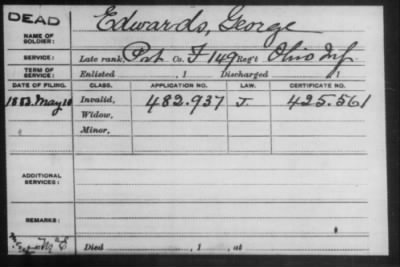 DEAD
NAME OF SOLDIER: Edwards, George
SERVICE: Late rank, Pvt. Co. F 149 Reg't Ohio Inf.
TERM OF SERVICE: Enlisted , 1 Discharged , 1
DATE OF FILING. CLASS. APPLICATION NO. LAW. CERTIFICATE NO.
1883. May 10 Invalid, 482.937 J. 425.561
Widow,
Minor,
ADDITIONAL SERVICES:
REMARKS:
Died , 1 , at